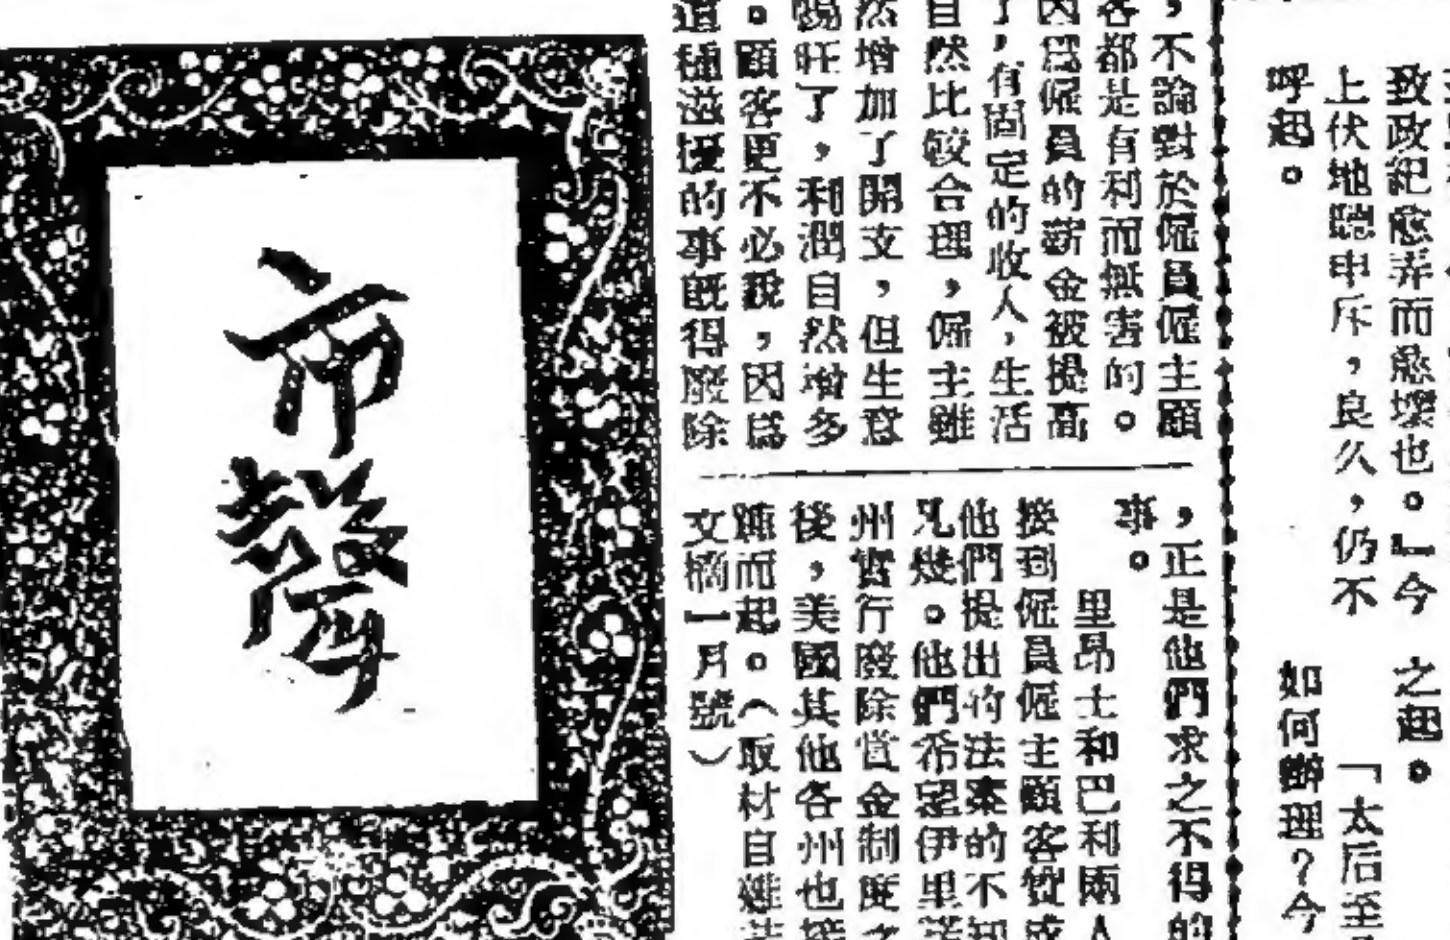 致政紀愈弄而愈壞也。』今
上伏地聽申斥，良久，仍不
呼起。
之起。
「太后至
如何辦理？今
，不論對於僱員僱主顧
客都是有利而無害的。
因爲僱員的薪金被提高
了，有固定的收入，生活
自然比較合理，僱主雖
然增加了開支，但生意
暢旺了，利潤自然增多
。顧客更不必說，因爲
這種滋擾的事既得廢除
，正是他們求之不得的
事。
里昂士和巴利兩人
接到僱員僱主顧客贊成
他們提出的法案的不知
凡幾。他們希望伊里諾
州實行廢除賞金制度之
後，美國其他各州也接
踵而起。（取材自雜誌
文摘一月號）
市聲